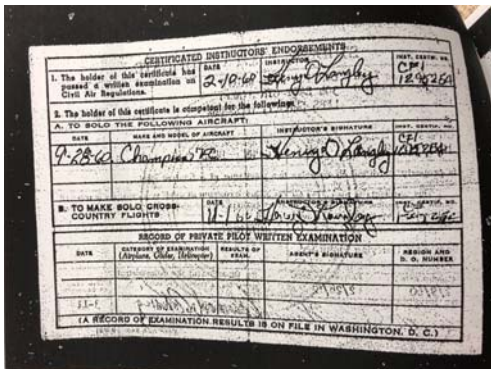 CERTIFICATED INSTRUCTORS' ENDORSEMENTS
1. The holder of this certificate has passed a written examination on Civil Air Regulations.
DATE
2-19-60
INSTRUCTOR
Henry D Langley
INST. CERTIF. NO.
CFI
2. The holder of this certificate is competent for the following:
A. TO SOLO THE FOLLOWING AIRCRAFT:
DATE
MAKE AND MODEL OF AIRCRAFT
INSTRUCTOR'S SIGNATURE
INST. CERTIF. NO.
9-28-60
Champion
Henry D Langley
CFI
B. TO MAKE SOLO CROSS-COUNTRY FLIGHTS
DATE
INSTRUCTOR'S SIGNATURE
INST. CERTIF. NO.
RECORD OF PRIVATE PILOT WRITTEN EXAMINATION
DATE
CATEGORY OF EXAMINATION
(Airplane, Glider, Helicopter)
RESULTS OF EXAM.
AGENT'S SIGNATURE
REGION AND D. O. NUMBER
(A RECORD OF EXAMINATION RESULTS IS ON FILE IN WASHINGTON, D. C.)